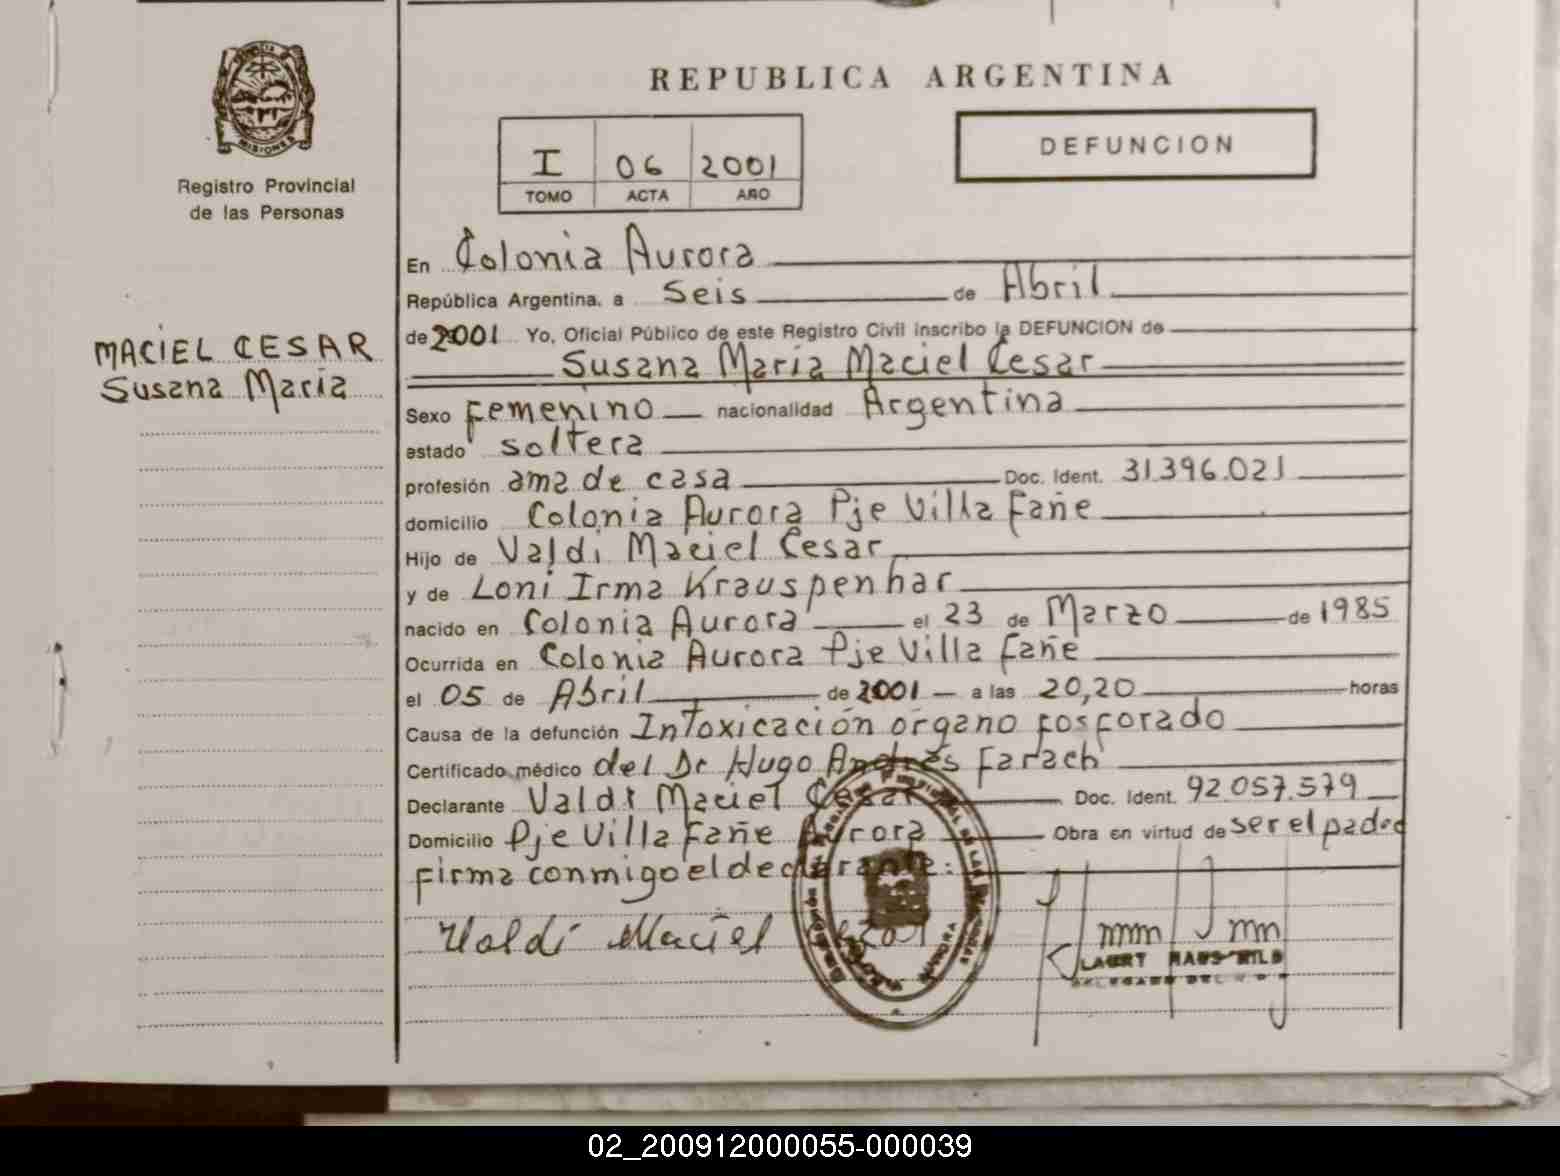 REPUBLICA ARGENTINA
MISIONES
Registro Provincial
de las Personas
I 06 2001
TOMO ACTA AÑO
DEFUNCION
MACIEL CESAR
Susana María
En Colonia Aurora
República Argentina, a Seis de Abril
de 2001 Yo, Oficial Público de este Registro Civil inscribo la DEFUNCION de
Susana María Maciel Cesar
Sexo Femenino nacionalidad Argentina
estado soltera
profesión ama de casa Doc. Ident. 31.396.021
domicilio Colonia Aurora Pje Villa Fañe
Hijo de Valdi Maciel Cesar
y de Loni Irma Krauspenhar
nacido en Colonia Aurora el 23 de Marzo de 1985
Ocurrida en Colonia Aurora Pje Villa Fañe
el 05 de Abril de 2001 a las 20,20 horas
Causa de la defunción Intoxicación organo fosforado
Certificado médico del Dr Hugo Andrés Farach
Declarante Valdi Maciel Cesar Doc. Ident. 92.057.579
Domicilio Pje Villa Fañe Aurora Obra en virtud de ser el padre
firma conmigo el declarante:
Valdi Maciel
02_200912000055-000039